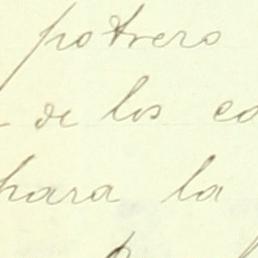 potrero
de los co
hara la